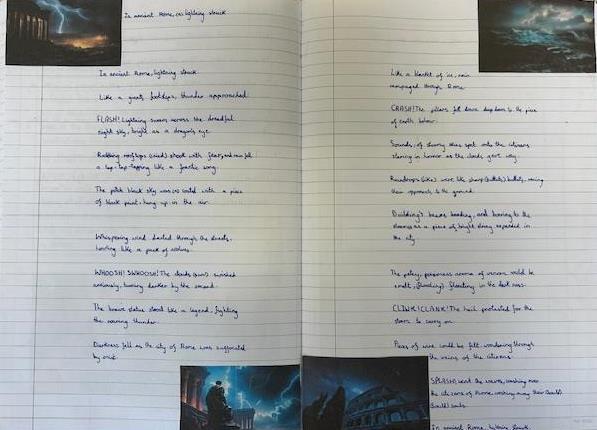 In ancient Rome, (as) lightning struck
In ancient Rome, lightning struck
Like a giants footsteps, thunder approached.
FLASH! Lightning swam across the dreadful
night sky, bright as a dragon's eye.
Rattling rooftops (cried) shook with fear, and rain fell
a tap-tap-tapping like a frantic song.
The pitch black sky was (as) could with a piece
of black paint, hung up in the air.
Whispering wind darted through the streets,
howling like a pack of wolves.
WHOOSH! SWOOSH! The clouds swished
anxiously, turning darker by the second.
The brave statue stood like a legend, fighting
the roaring thunder.
Darkness fell as the city of Rome was suffocated
by
Like a blanket of ice, rain
rampaged through Rome.
CRASH! The pillars fell down deep down to the
of earth below.
Sounds of stormy skies spat onto the citizens
in horror as the clouds gave way.
Raindrops (like) were like sharp (bullets) bullets, racing
their approach to the ground.
Building's beams bending, and
as a piece of bright expanded in
the city
The poisonous aroma of could be
smelt, floating in the dark
CLINK! CLANK! The hail protested for the
storm to carry on.
of could be felt, wandering through
the veins of the citizens.
SPLASH! went the waves, washing over
the citizens of Rome, washing away their
souls.
In ancient Rome, lightning struck.